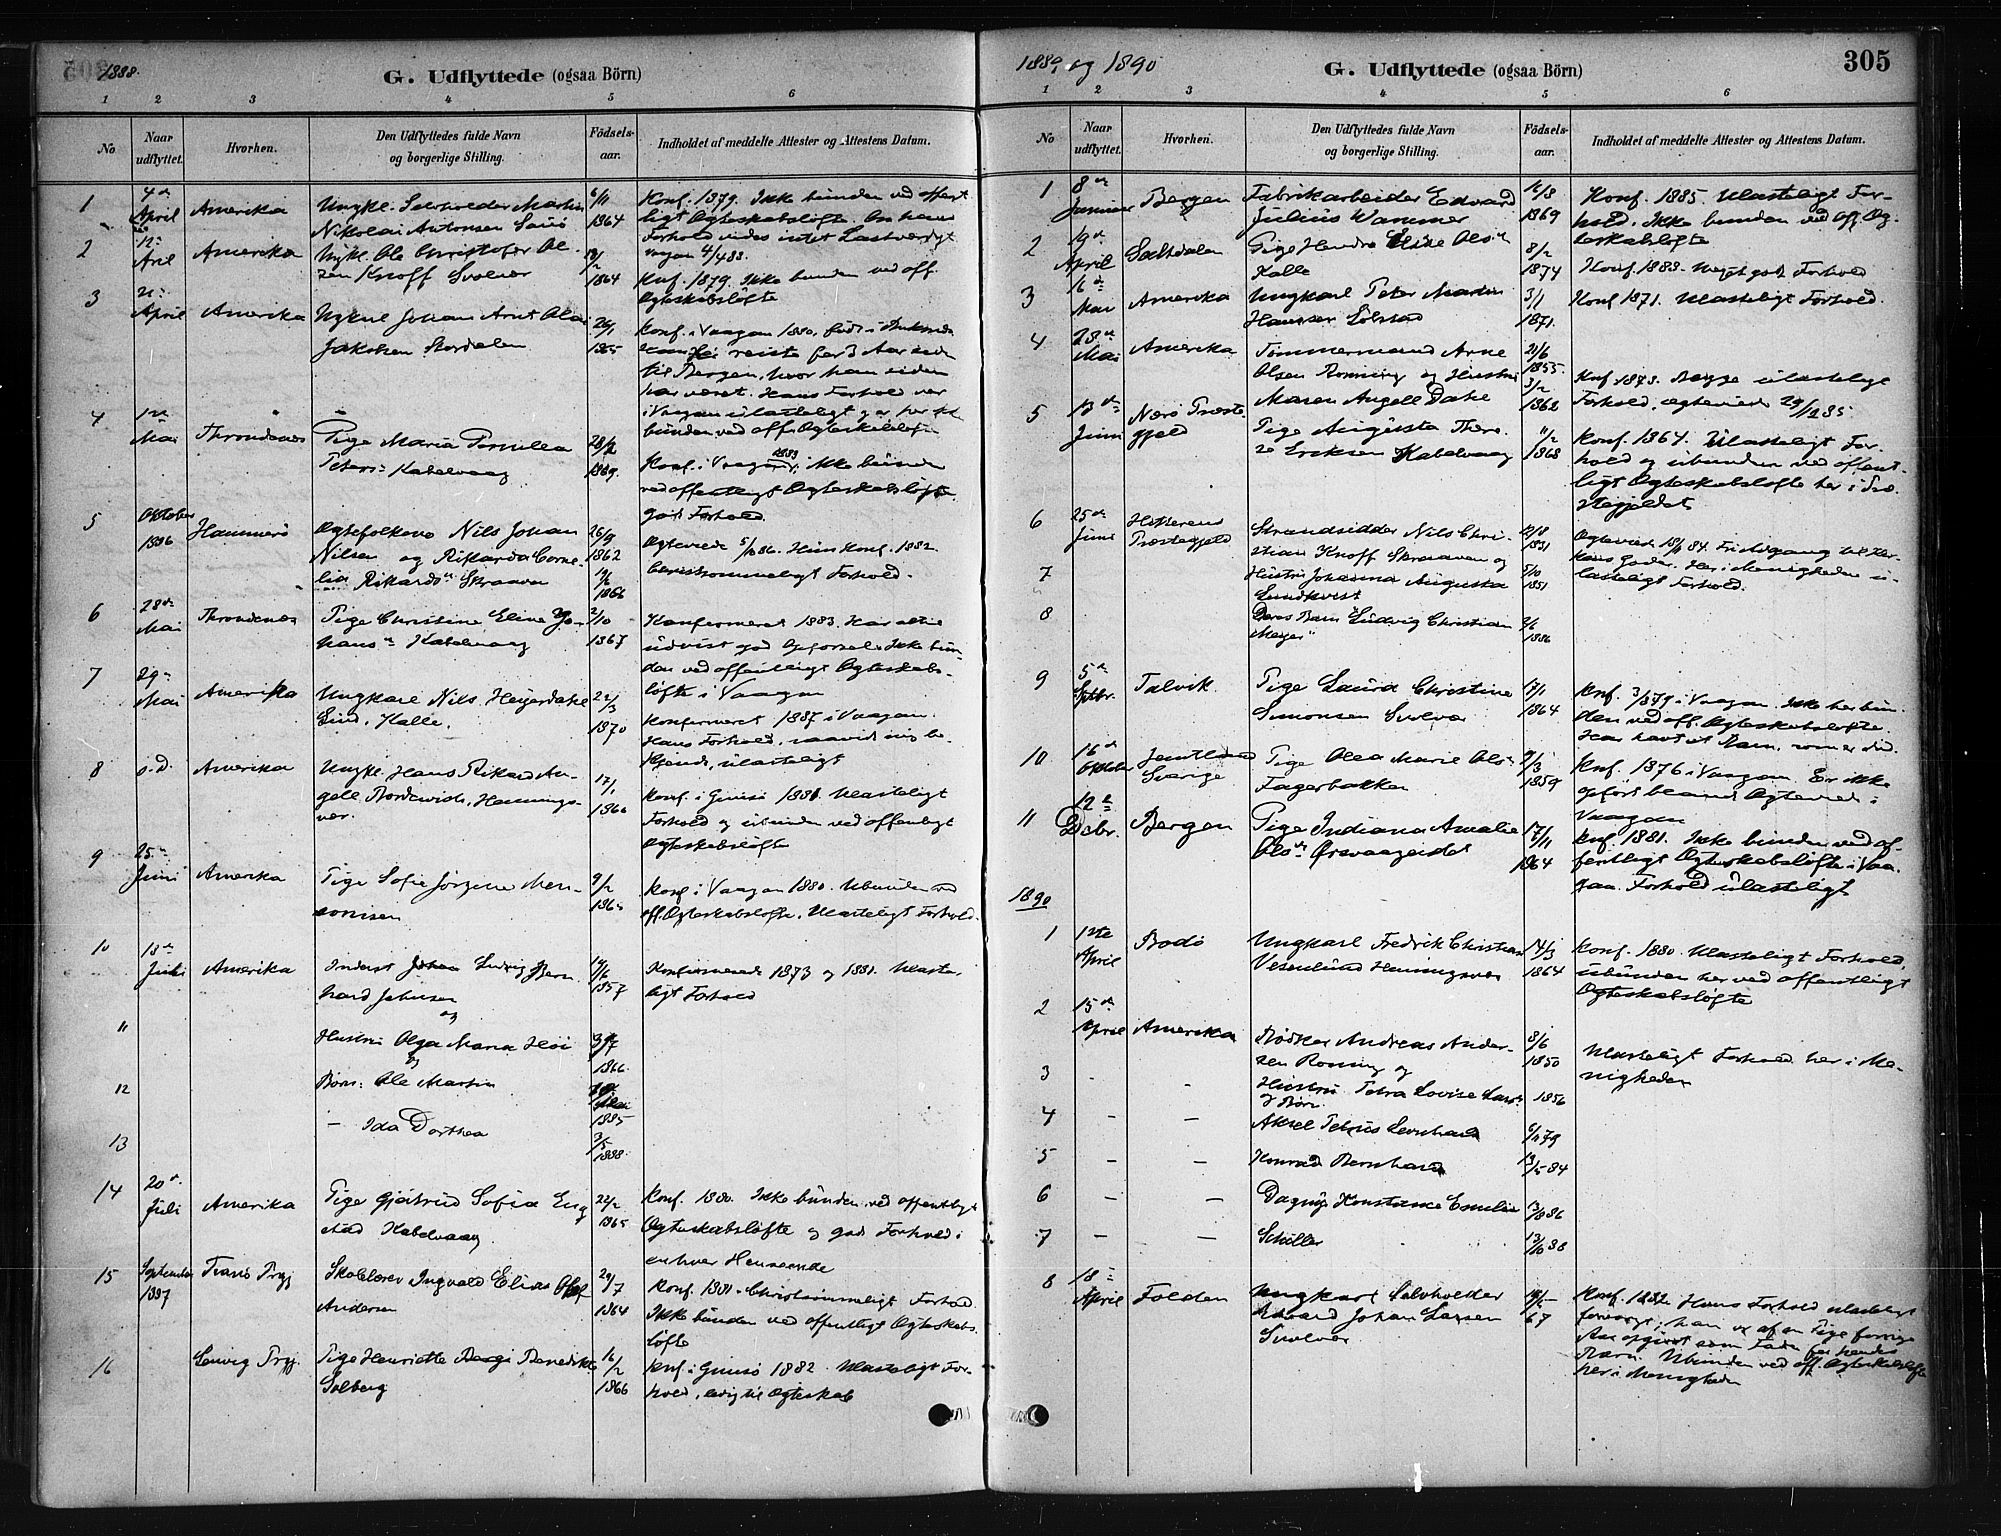 1888.
G. Udflyttede (ogsaa Börn)
1 2 3 4 5 6
No
Naar udflyttet.
Hvorhen.
Den Udflyttedes fulde Navn
og borgerlige Stilling.
Födsels-
aar.
Indholdet af meddelte Attester og Attestens Datum.
1 4de April Amerika
Ungkl. Selveieder Martin
Nikolai Antonsen
6/11 1864
Konf. 1879. Ikke bunden ved offent
ligt Ægteskabsløfte. Om hans
Forhold vides intet Lastværdigt
Vaagan 4/4 88.
2 12te April Amerika
Ungkl. Ole Christofer Ol-
sen Knoff Svolvær
1864
Konf. 1879. Ikke bunden ved off.
Ægteskabsløfte
3 April Amerika
Ungkarl Johan Arnt Olai
Jakobsen Stordalen
26/1 1865
Konf. i Vaagan 1880, født i
reiste for 3 Aar siden
til Bergen, hvor han siden
har været. Hans Forhold var
i Vaagan ulasteligt
bunden ved off. Ægteskabsløfte
4 Mai Throndenæs
Pige Maria Pernilla
Peters: Kabelvaag
1869.
Konf. i Vaagan 1883, ikke bunden
ved offentligt Ægteskabsløfte
godt Forhold.
5 Oktober 1886 Hammerø
Ægtefolkene Nils Johan
Nilsen og Rikarda Corne-
lia Rikardsn Skraaven
26/9 1862
1866
Ægteviede 5/10 86. Hun Konf. 1882.
Christsømmeligt Forhold.
6 28de Mai Throndenæs
Pige Christine Eline Jo-
hansn Kabelvaag
2/10 1867
Konfirmeret 1883. Har altid
udvist god Opførsel. Ikke bun-
den ved offentligt Ægteskabs-
løfte i Vaagan
7 29de Mai Amerika
Ungkarl Nils Heyerdahl
Lind, Kalle.
22/3 1870
Konfirmeret 1887 i Vaagan.
Hans Forhold, saavidt mig be-
kjendt, ulasteligt
8 s.d. Amerika
Ungkl. Hans Rikard An-
gell Bordewich, Hennings-
vær.
17/1 1866
Konf. i Gimsø 1881. Ulasteligt
Forhold og ubunden ved offentligt
Ægteskabsløfte
9 25de Juni Amerika
Pige Sofie Jørgine Men-
tonisen
9/2 1865
Konf. i Vaagan 1880. Ubunden ved
off. Ægteskabsløfte. Ulasteligt Forhold.
10 13de Juli Amerika
Inderst Ludvig Bern
hard Johnsen
og
1857
Konfirmerede 1873 og 1881. Ulaste-
ligt Forhold
11
Hustru Olga Maria Høi
og
1866.
12
Børn: Ole Martin
1885
13
— Ida Dorthea
3/5 1888.
14 20de Juli Amerika
Pige Gjertrud Sofia Eng
stad Kabelvaag
22/2 1865
Konf. 1880. Ikke bunden ved offentligt
Ægteskabsløfte og godt Forhold i
enhver Henseende
15 September 1887 Tranø Prgj
Skolelærer Ingvald Elias Olaf
Andersen
29/7 1864
Konf. 1881. Christsømmeligt Forhold.
Ikke bunden ved offentligt Ægteskabs-
løfte
16 Lenvig Prgj.
Pige Henriette Bergi Benedikte
Solberg
16/2 1866
Konf. i Gimsø 1882. Ulasteligt For-
hold, ledig til Ægteskab
1889 og 1890
G. Udflyttede (ogsaa Börn)
305
1 2 3 4 5 6
No
Naar udflyttet.
Hvorhen.
Den Udflyttedes fulde Navn
og borgerlige Stilling.
Födsels-
aar.
Indholdet af meddelte Attester og Attestens Datum.
1 8de Januar Bergen
Fabrikarbeider Edvard
Julius Wammer
16/8 1869
Konf. 1885. Ulasteligt For-
hold. Ikke bunden ved off. Æg-
teskabsløfte
2 19de April Saltdalen
Pige Elise Olsn
Kalle
8/2 1874
Konf. 1888. Meget godt Forhold
3 16de Mai Amerika
Ungkarl Peter Martin
Hansen
3/1 1871.
Konf. 1871. Ulasteligt Forhold.
4 28de Mai Amerika
Tømmermand Arne
Olsen Rønning og Hustru
Maren Angell Dahl
21/6 1855
3/2 1862
Konf. 1873. Begge ulasteligt
Forhold, ægteviede
5 13de Juni Nærø Præste
gjeld
Pige Augusta There-
se Eriksen Kabelvaag
11/2 1868
Konf. 1864. Ulasteligt For-
hold og ubunden ved offent-
ligt Ægteskabsløfte her i Præ-
stegjeldet
6 25de Juni Hitterens
Præstegjeld
Strandsidder Nils Chri-
stian Knoff Skraaven og
7
Hustru Johanna Augusta
Lundkvist
5/10 1851
Ægteviede 84. Fri Adgang til Her-
rens Goder. Her i Menigheden u-
lasteligt Forhold.
8
Deres Barn Ludvig Christian
Meyer
1886
9 5te Septbr. Talvik
Pige Laura Christine
Simonsen Svolvær
17/1 1864
Konf. 1879 i Vaagan. Ikke her bun-
den ved off. Ægteskabsløfte.
Har havt et Barn, som er død.
10 16de Oktober Jemtland
Sverige
Pige Olea Marie Ols-
Fagerbakken
9/3 1859
Konf. 1876 i Vaagan. Er ikke
opført blandt Ægteviede i
Vaagan
11 12te Decbr. Bergen
Pige Indiana Amalie
Olsn Ørsvaageidet
17/11 1864
Konf. 1881. Ikke bunden ved of-
fentligt Ægteskabsløfte i Vaa-
gan. Forhold ulasteligt
1890
1 12te April Bodø
Ungkarl Fredrik Christian
Vesterlund Henningsvær
14/3 1864
Konf. 1880. Ulasteligt Forhold,
ubunden her ved offentligt
Ægteskabsløfte
2 15de April Amerika
Bødker Andreas Ander-
sen Rønning og
8/6 1850
Ulasteligt Forhold her i Me-
nigheden
3 - -
Hustru Petra Lovise Larsn
og Børn
1856
4 - -
Aksel Petrus Leonhard
79
5 - -
Konrad Bernhard
84
6 - -
Dagny Konstanse Emelie
86
7 - -
Schøller
13/10 88
8 18de April Folden
Ungkarl Selvholder
Edvard Johan Larsen
Svolvær
67
Konf. 1882. Hans Forhold ulasteligt
forøvrigt; han er af en Pige forrige
Aar opgivet som Fader for hendes
Barn. Ubunden ved off. Ægteskabsløfte
her i Menigheden